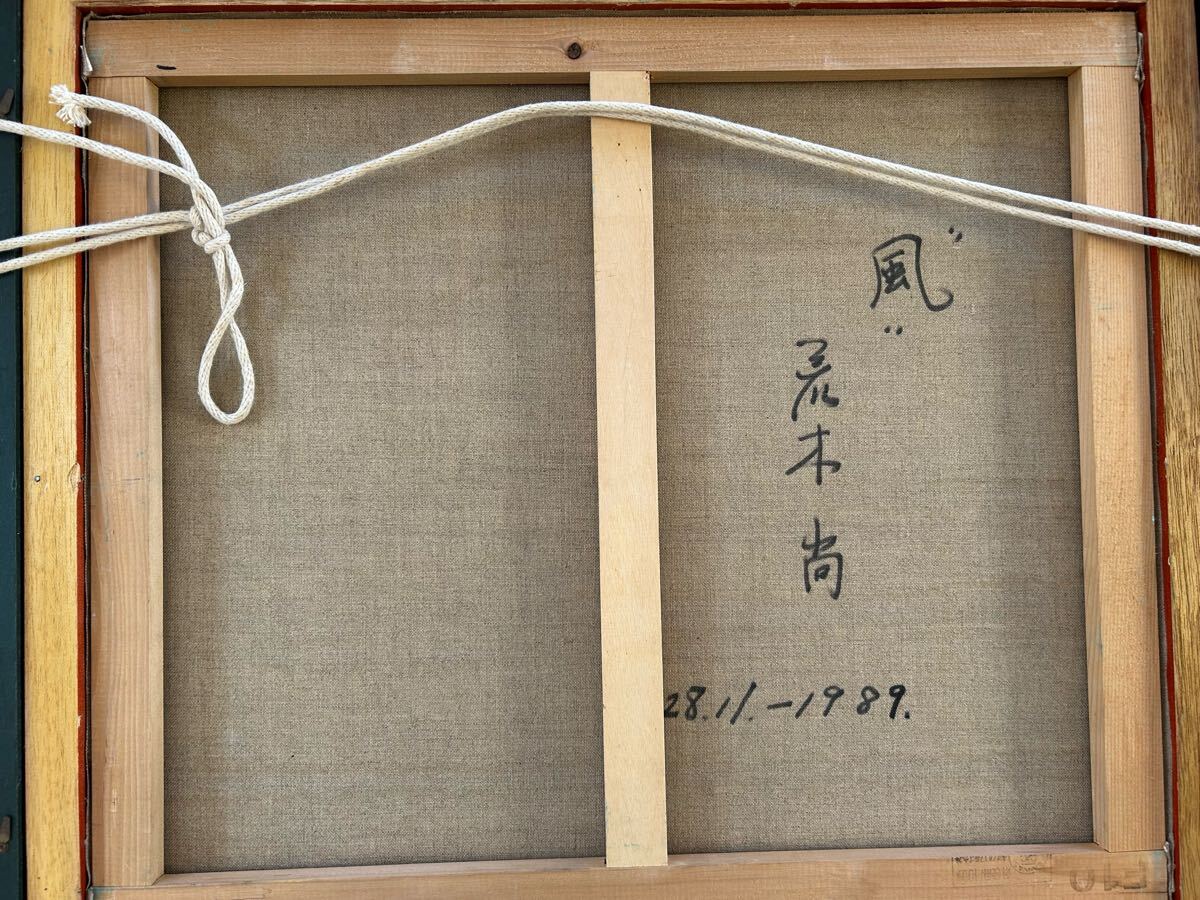 "風"
荒木尚
28.11.-1989.
F10